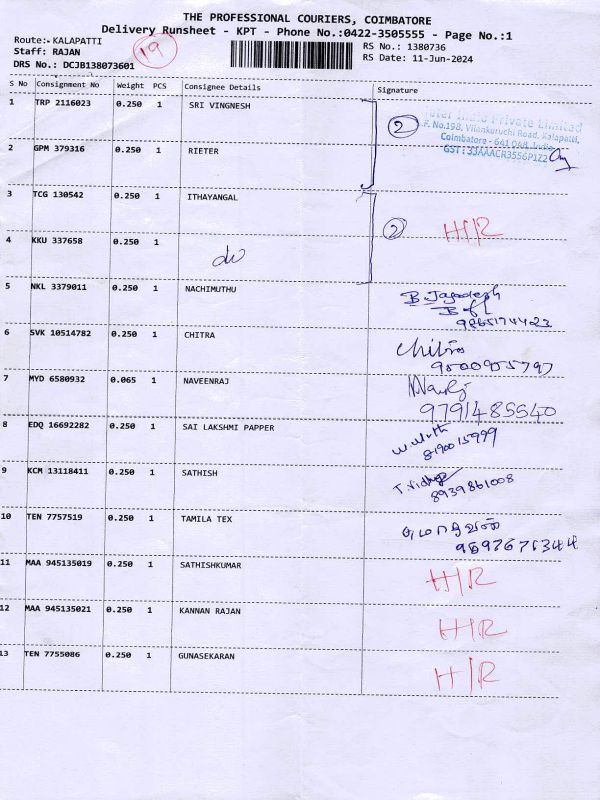 THE PROFESSIONAL COURIERS, COIMBATORE
Delivery Runsheet - KPT - Phone No.:0422-3505555 - Page No.:1
Route:- KALAPATTI
Staff: RAJAN
19
RS No.: 1380736
DRS No.: DCJB138073601
RS Date: 11-Jun-2024
S No Consignment No Weight PCS Consignee Details Signature
1 TRP 2116023 0.250 1 SRI VINGNESH
2
India Private Limited
S.F. No.198, Vilankuruchi Road, Kalapatti,
Coimbatore - 641 048. India
GST : 33AAACR3556P1Z2
2 GPM 379316 0.250 1 RIETER
3 TCG 130542 0.250 1 ITHAYANGAL
2 H/R
4 KKU 337658 0.250 1
do
5 NKL 3379011 0.250 1 NACHIMUTHU
B. Jagadesh
9865174423
6 SVK 10514782 0.250 1 CHITRA
Chitra
9500905797
7 MYD 6580932 0.065 1 NAVEENRAJ
9791485540
8 EDQ 16692282 0.250 1 SAI LAKSHMI PAPPER
8190015999
9 KCM 13118411 0.250 1 SATHISH
8939861008
10 TEN 7757519 0.250 1 TAMILA TEX
11 MAA 945135019 0.250 1 SATHISHKUMAR H/R
12 MAA 945135021 0.250 1 KANNAN RAJAN H/R
13 TEN 7755086 0.250 1 GUNASEKARAN H/R